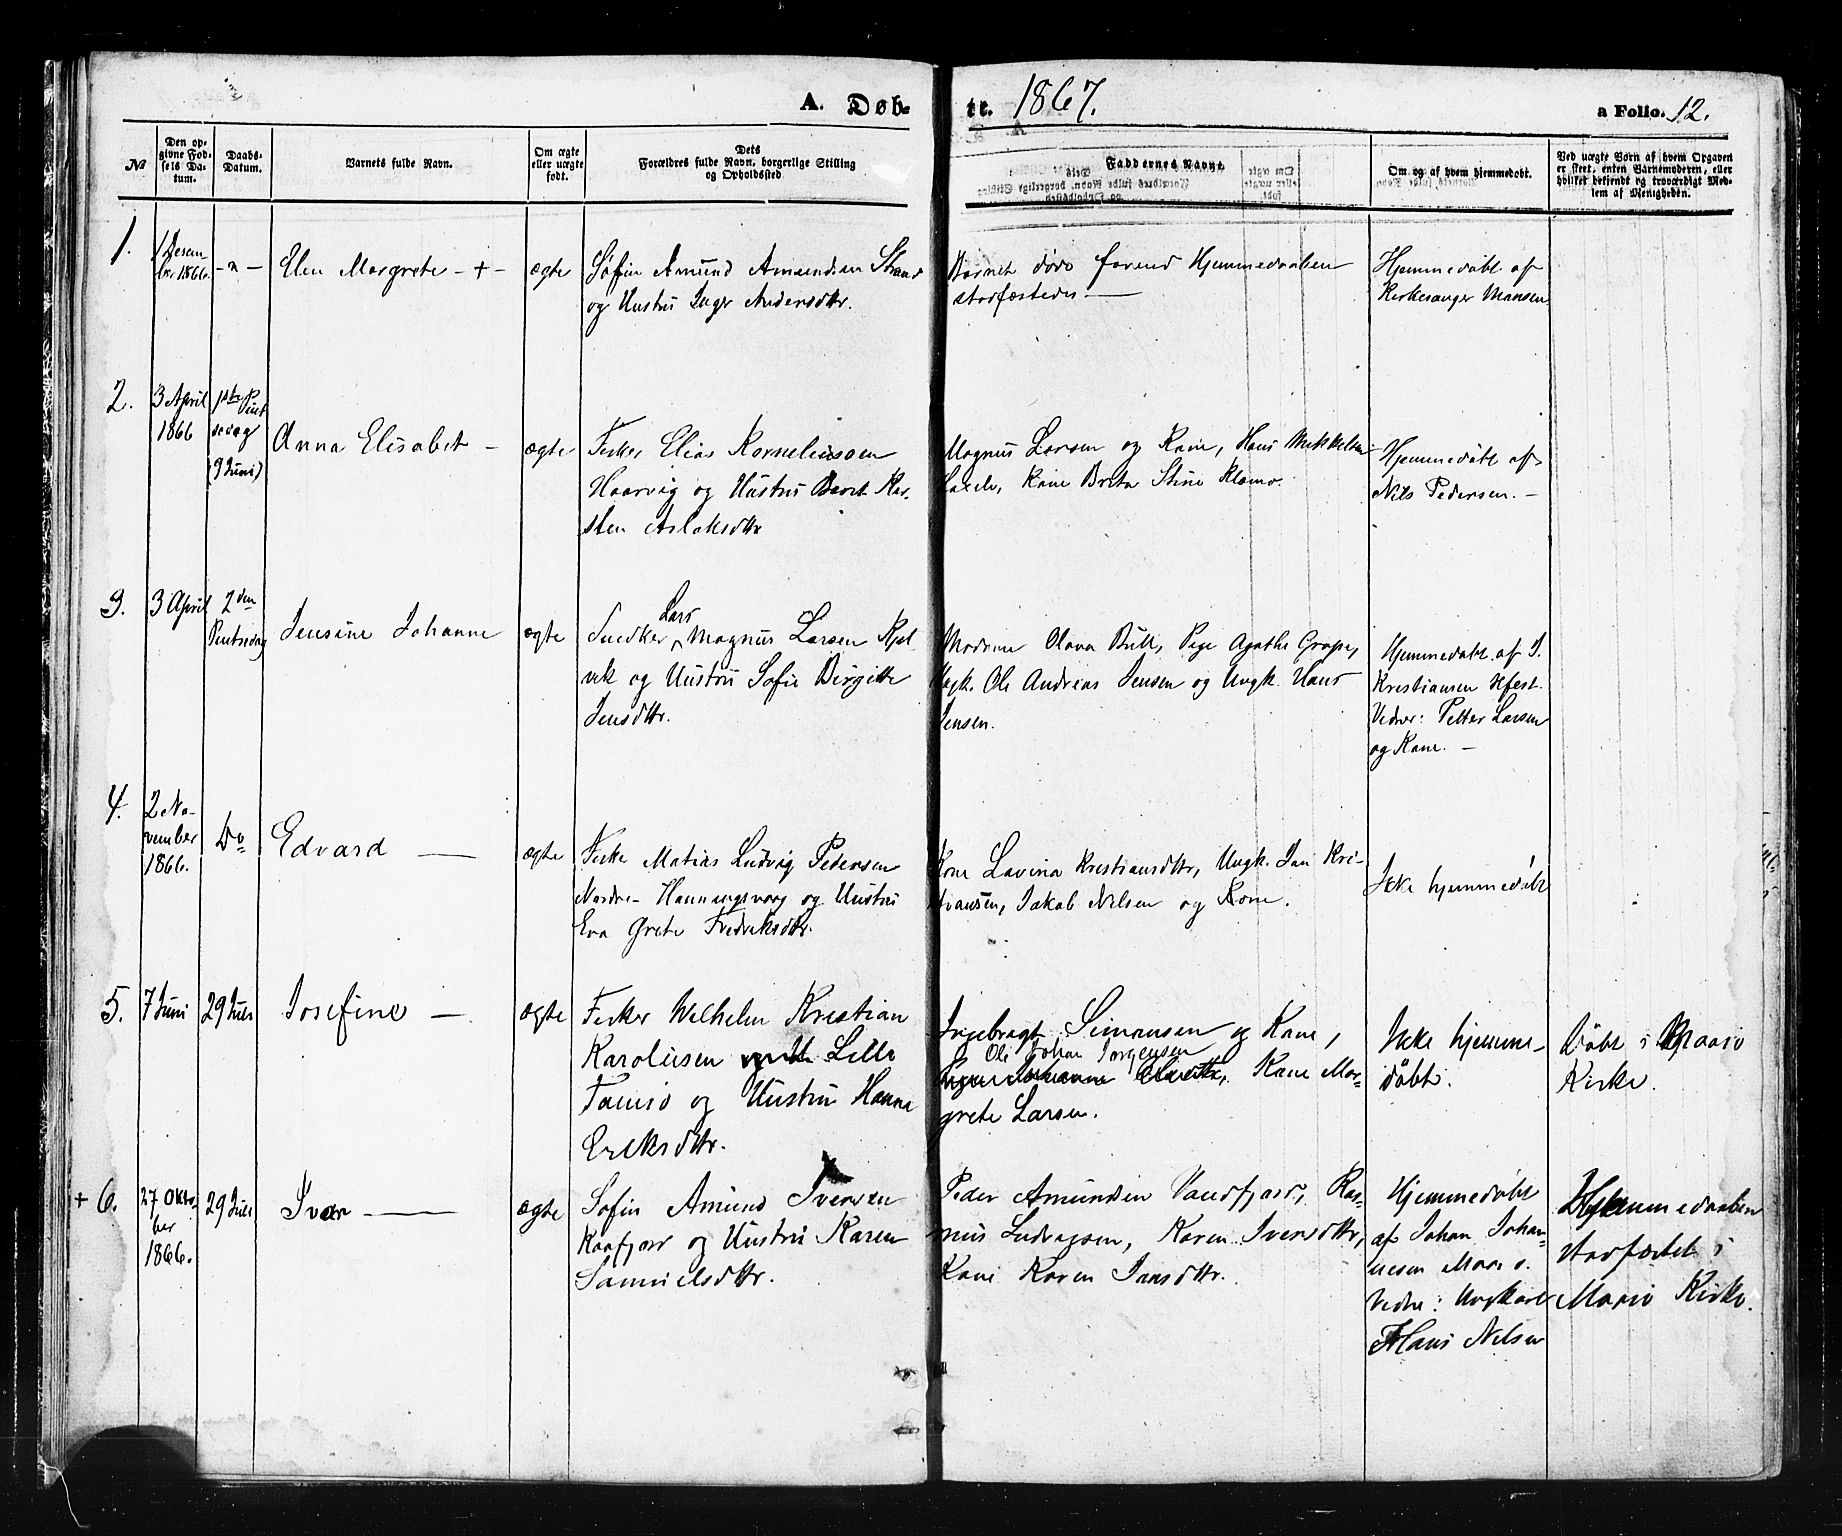 A. Døb-
te. 1867.
a Folio. 12.
No
Den op-
givne Fød-
sels Da-
tum.
Daabs-
Datum.
Barnets fulde Navn.
Om ægte
eller uægte
født.
Dets
Forældres fulde Navn, borgerlige Stilling
og Opholdssted
Faddernes Navne.
Om og af hvem hjemmedøbt.
Ved uægte Børn af hvem Opgaven
er skeet, enten Barnemoderen, eller
hvilket bekjendt og troværdigt Med-
lem af Menigheden.
1.
1 Desem
ber 1866.
-"-
Elen Margrete - + -
ægte
Søfin Amund Amundsen Strand
og Hustru Inger Andersdtr.
Barnet døde forend Hjemmedaaben
stadfæstedes —
Hjemmedøbt af
Kirkesanger Mansen
2.
3 April
1866
1ste Pint
sedag
(9 Juni)
Anna Elisabet -
ægte
Fisker Elias Korneliussen
Haarvig og Hustru Berit Kir-
sten Aslaksdtr
Magnus Larsen og Kone, Hans Mikkelsen
Kone Brita Stine
Hjemmedøbt af
Nils Pedersen. -
3.
3 April
2den
Pintsedag
Jensine Johanne
ægte
Lars
Snedker Magnus Larsen Kjel
vik og Hustru Sofie Birgitte
Jensdtr.
Madame Olava Bull, Pige Agathe Grape,
Ungk. Ole Andreas Jensen og Ungk. Hans
Jensen.
Hjemmedøbt af J.
Kristiansen Hfest.
Vidner: Petter Larsen
og Kone. -
4.
2 No-
vember
1866.
Do
Edvard —
ægte
Fisker Matias Ludvig Pedersen
Nordre- Honningsvaag og Hustru
Eva Grete Fredriksdtr.
Kone Lavina Kristiansdtr, Ungk. Jan Kri-
stiansen, Jakob Nilsen og Kone.
Ikke hjemmedøbt
5.
7 Juni
29 Juli
Josefine —
ægte
Fisker Wilhelm Kristian
Karolusen Lille
Tamsø og Hustru Hanna
Eriksdtr.
Ingebrigt Simonsen og Kone,
Ole Johan Jørgensen
Kone Mar-
grete Larsen.
Ikke hjemme-
døbt.
Døbt i Maasø
Kirke.
+ 6.
27 Okto-
ber
1866.
29 Juli
Ivar —
ægte
Søfin Amund Iversen
Kaafjord og Hustru Karen
Samuelsdtr.
Peder Amundsen Vandfjord, Ras-
mus Ludvigsen, Karen Iversdtr,
Kone Karen Jansdtr.
Hjemmedøbt
af Johan Johan-
nesen Maasø.
Vidne: Ungkarl
Hans Nilsen
Hjemmedaaben
stadfæstet i
Maasø Kirke.